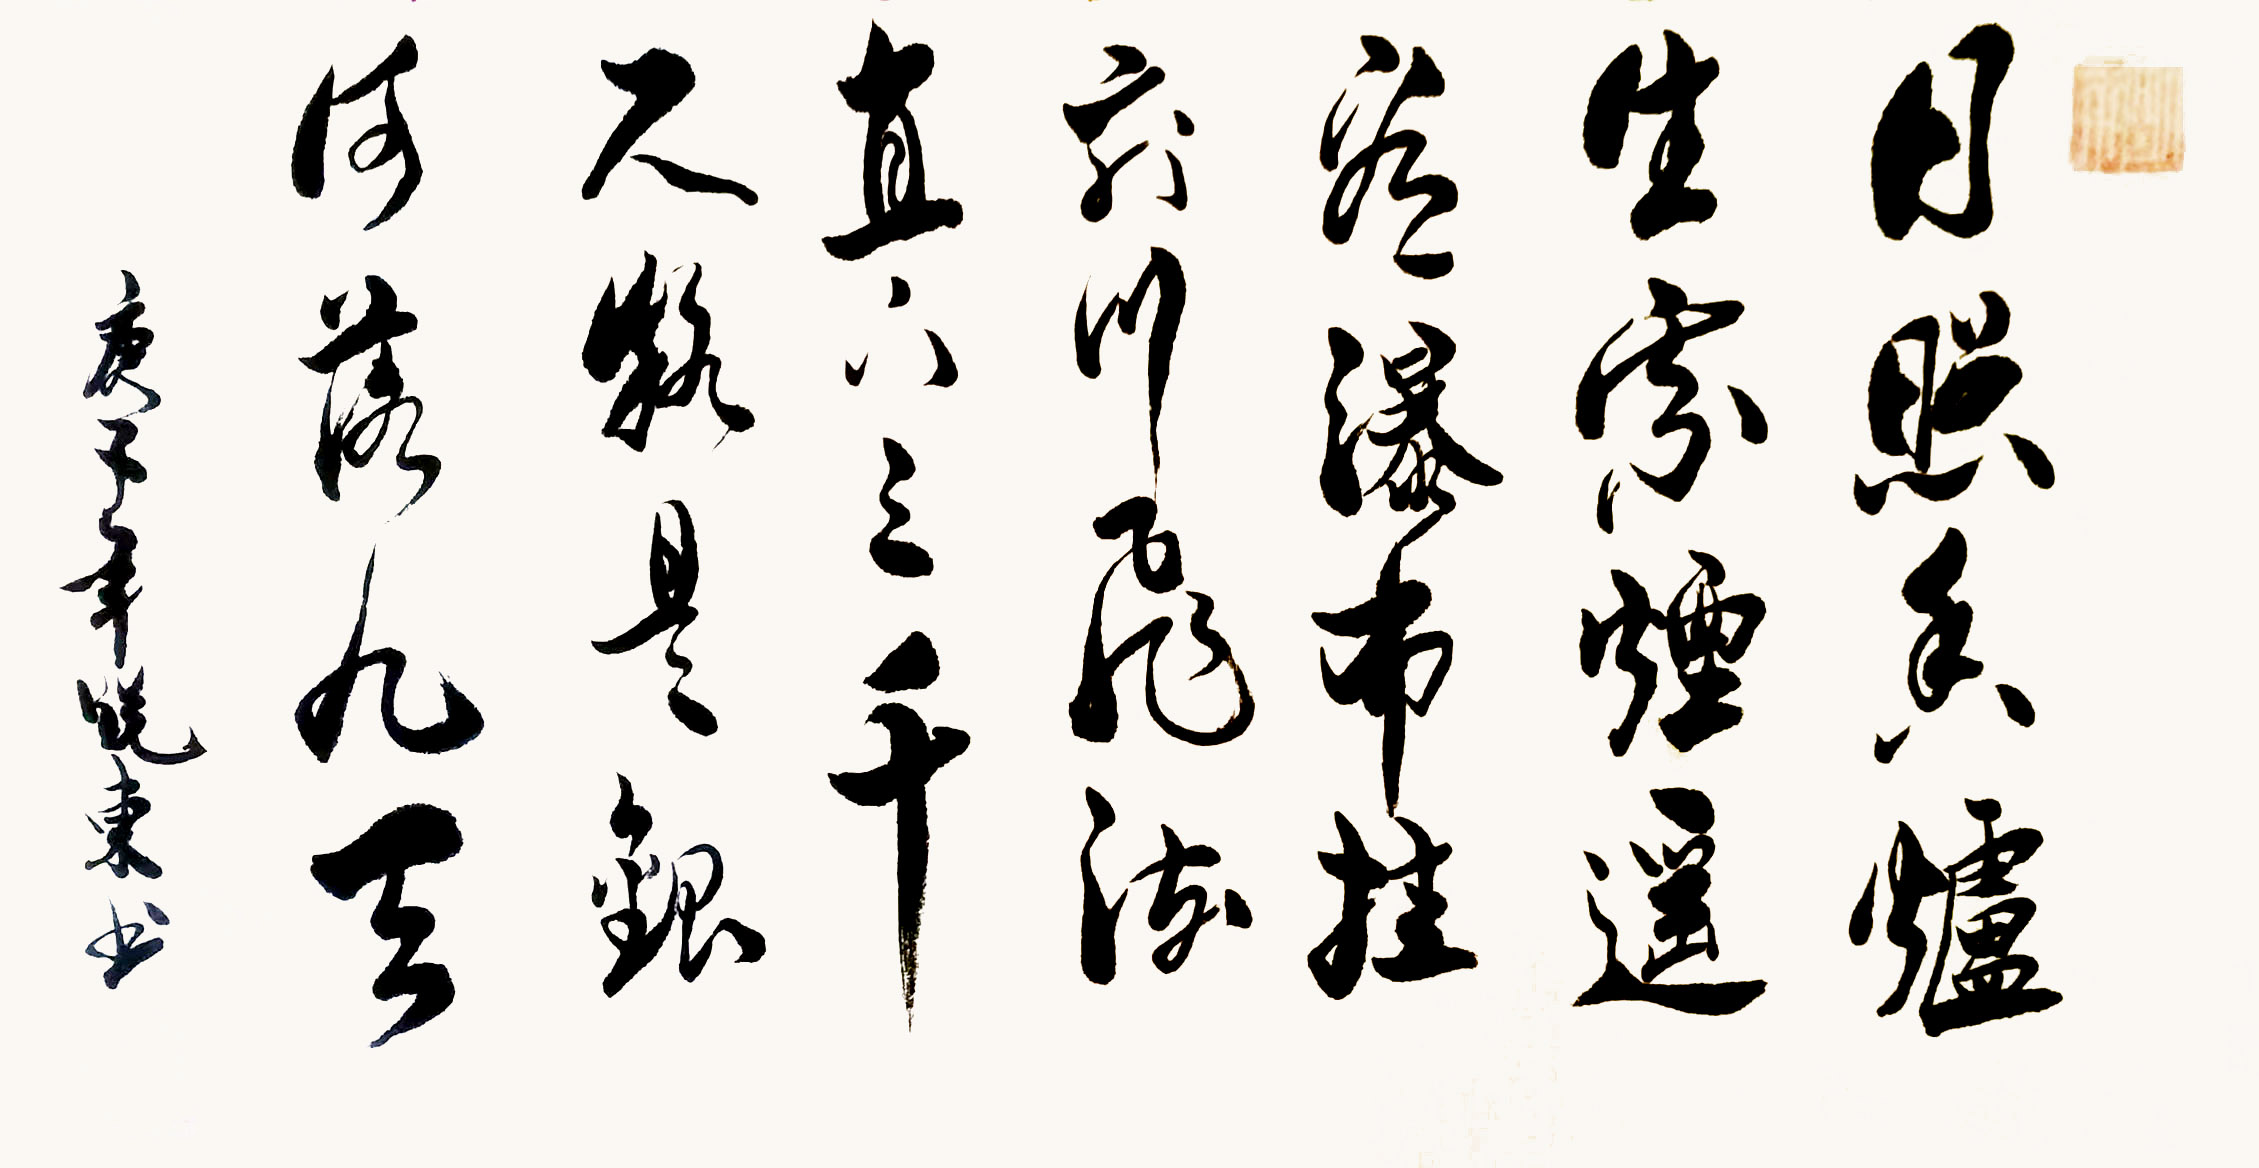 日照香爐
生紫煙遥
看瀑布挂
前川飛流
直下三千
尺疑是銀
河落九天
庚子年晓東书